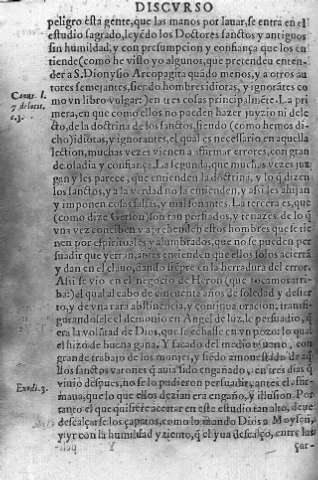 DISCVRSO
peligro esta gente, que las manos por lauar, se entra en el
estudio sagrado, leyẽdo los Doctores sanctos y antiguos
sin humildad, y con presumpcion y confiança que los en
tiende (como he visto yo algunos, que pretendeu enten-
der a S. Dionysio Areopagita quãdo menos, y a otros au-
tores semejantes, siẽdo hombres idiotas, y ignorãtes co
mo vn libro vulgar) en tres cosas principalmẽte. La pri
mera, en que como ellos no pueden hazer juyzio ni dele
cto, de la doctrina de los sanctos, siendo (como hemos di-
cho) idiotas, y ignorantes, el qual es necessario en aquella
lection, muchas vezes vienen a affirmar errores, con gran
de osadia y confiança. La segunda, que muchas vezes juz
gan y les parece, que entienden la doctrina, y lo q̃ dizen
los sanctos, y a la verdad no la entienden, y assi les ahijan
y imponen cosas falsas, y mal sonantes. La tercera es, que
(como dize Gerson) son tan porfiados, y tenazes de lo q̃
vna vez conciben y aprehenden estos hombres que se tie
nen por espirituales y alumbrados, que no se pueden per
suadir que yerran, antes entienden que ellos solos aciertã
y dan en el clauo, dando siẽpre en la herradura del error.
Assi se vio en el negocio de Heron (que tocamos arri-
ba) el qual al cabo de cincuenta años de soledad y desier
to, y de vna rara abstinencia, y continua oracion, transfi-
gurandosele el demonio en Angel de luz, le persuadio, q̃
era la volũtad de Dios, que se echasse en vn pozo: lo qual
el hizo de buena gana. Y sacado del medio muerto, con
gran de trabajo de los monjes, y siẽdo amonestado de aq̃
llos sanctos varones q̃ auia sido engañado, en tres dias q̃
viuio despues, no se lo pudieron persuadir, antes el affir-
maua, que lo que ellos dezian era engaño, y illusion. Por
tanto el que quisiere acertar en este estudio tan alto, deue
descalçarse los çapatos, como lo mando Dios a Moysen,
y yr con la humildad y tiento, q̃ el yua descalço, entre las
çar-
Canus. l.
7 de locis.
c. 3.
Exodi. 3.